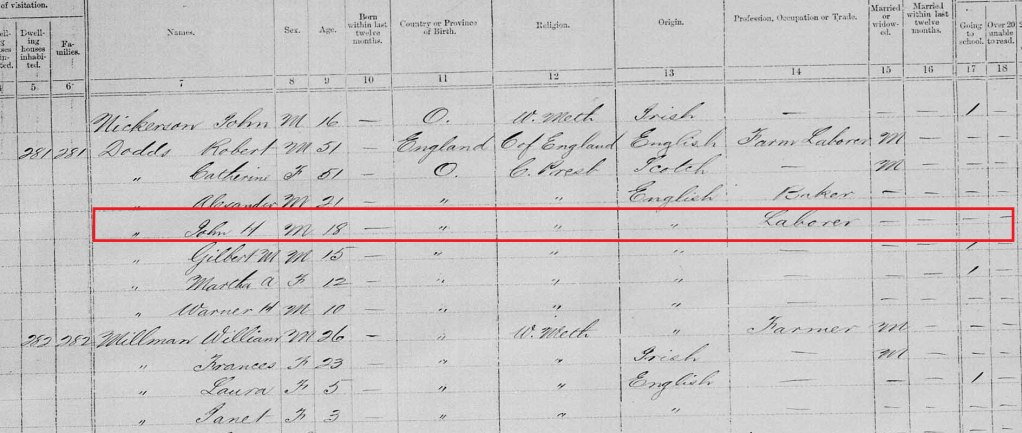 of visitation.
Dwell-ing houses inhabi-ted. Fa-milies. Names. Sex. Age. Born within last twelve months. Country or Province of Birth. Religion. Origin. Profession, Occupation or Trade. Married or widow-ed. Married within last twelve months. Going to school. Over 20 unable to read.
5 6 7 8 9 10 11 12 13 14 15 16 17 18
Nickerson John M 16 — O. W. Meth Irish — — — 1 —
281 281 Dodds Robert M 51 — England C of England English Farm Laborer M — — —
" Catherine F 51 — O. C. Prest Scotch — M — — —
" Alexander M 21 — " " English — — — —
" John H M 18 — " " " Laborer — — — —
" Gilbert M M 15 — " " " — — — 1 —
" Martha A F 12 — " " " — — — 1 —
" Warner H M 10 — " " " — — — — —
282 282 Millman William M 26 — " W. Meth " Farmer M — — —
" Frances F 23 — " " Irish — M — — —
" Laura F 5 — " " English — — — 1 —
" Janet F 3 — " " " — — — — —